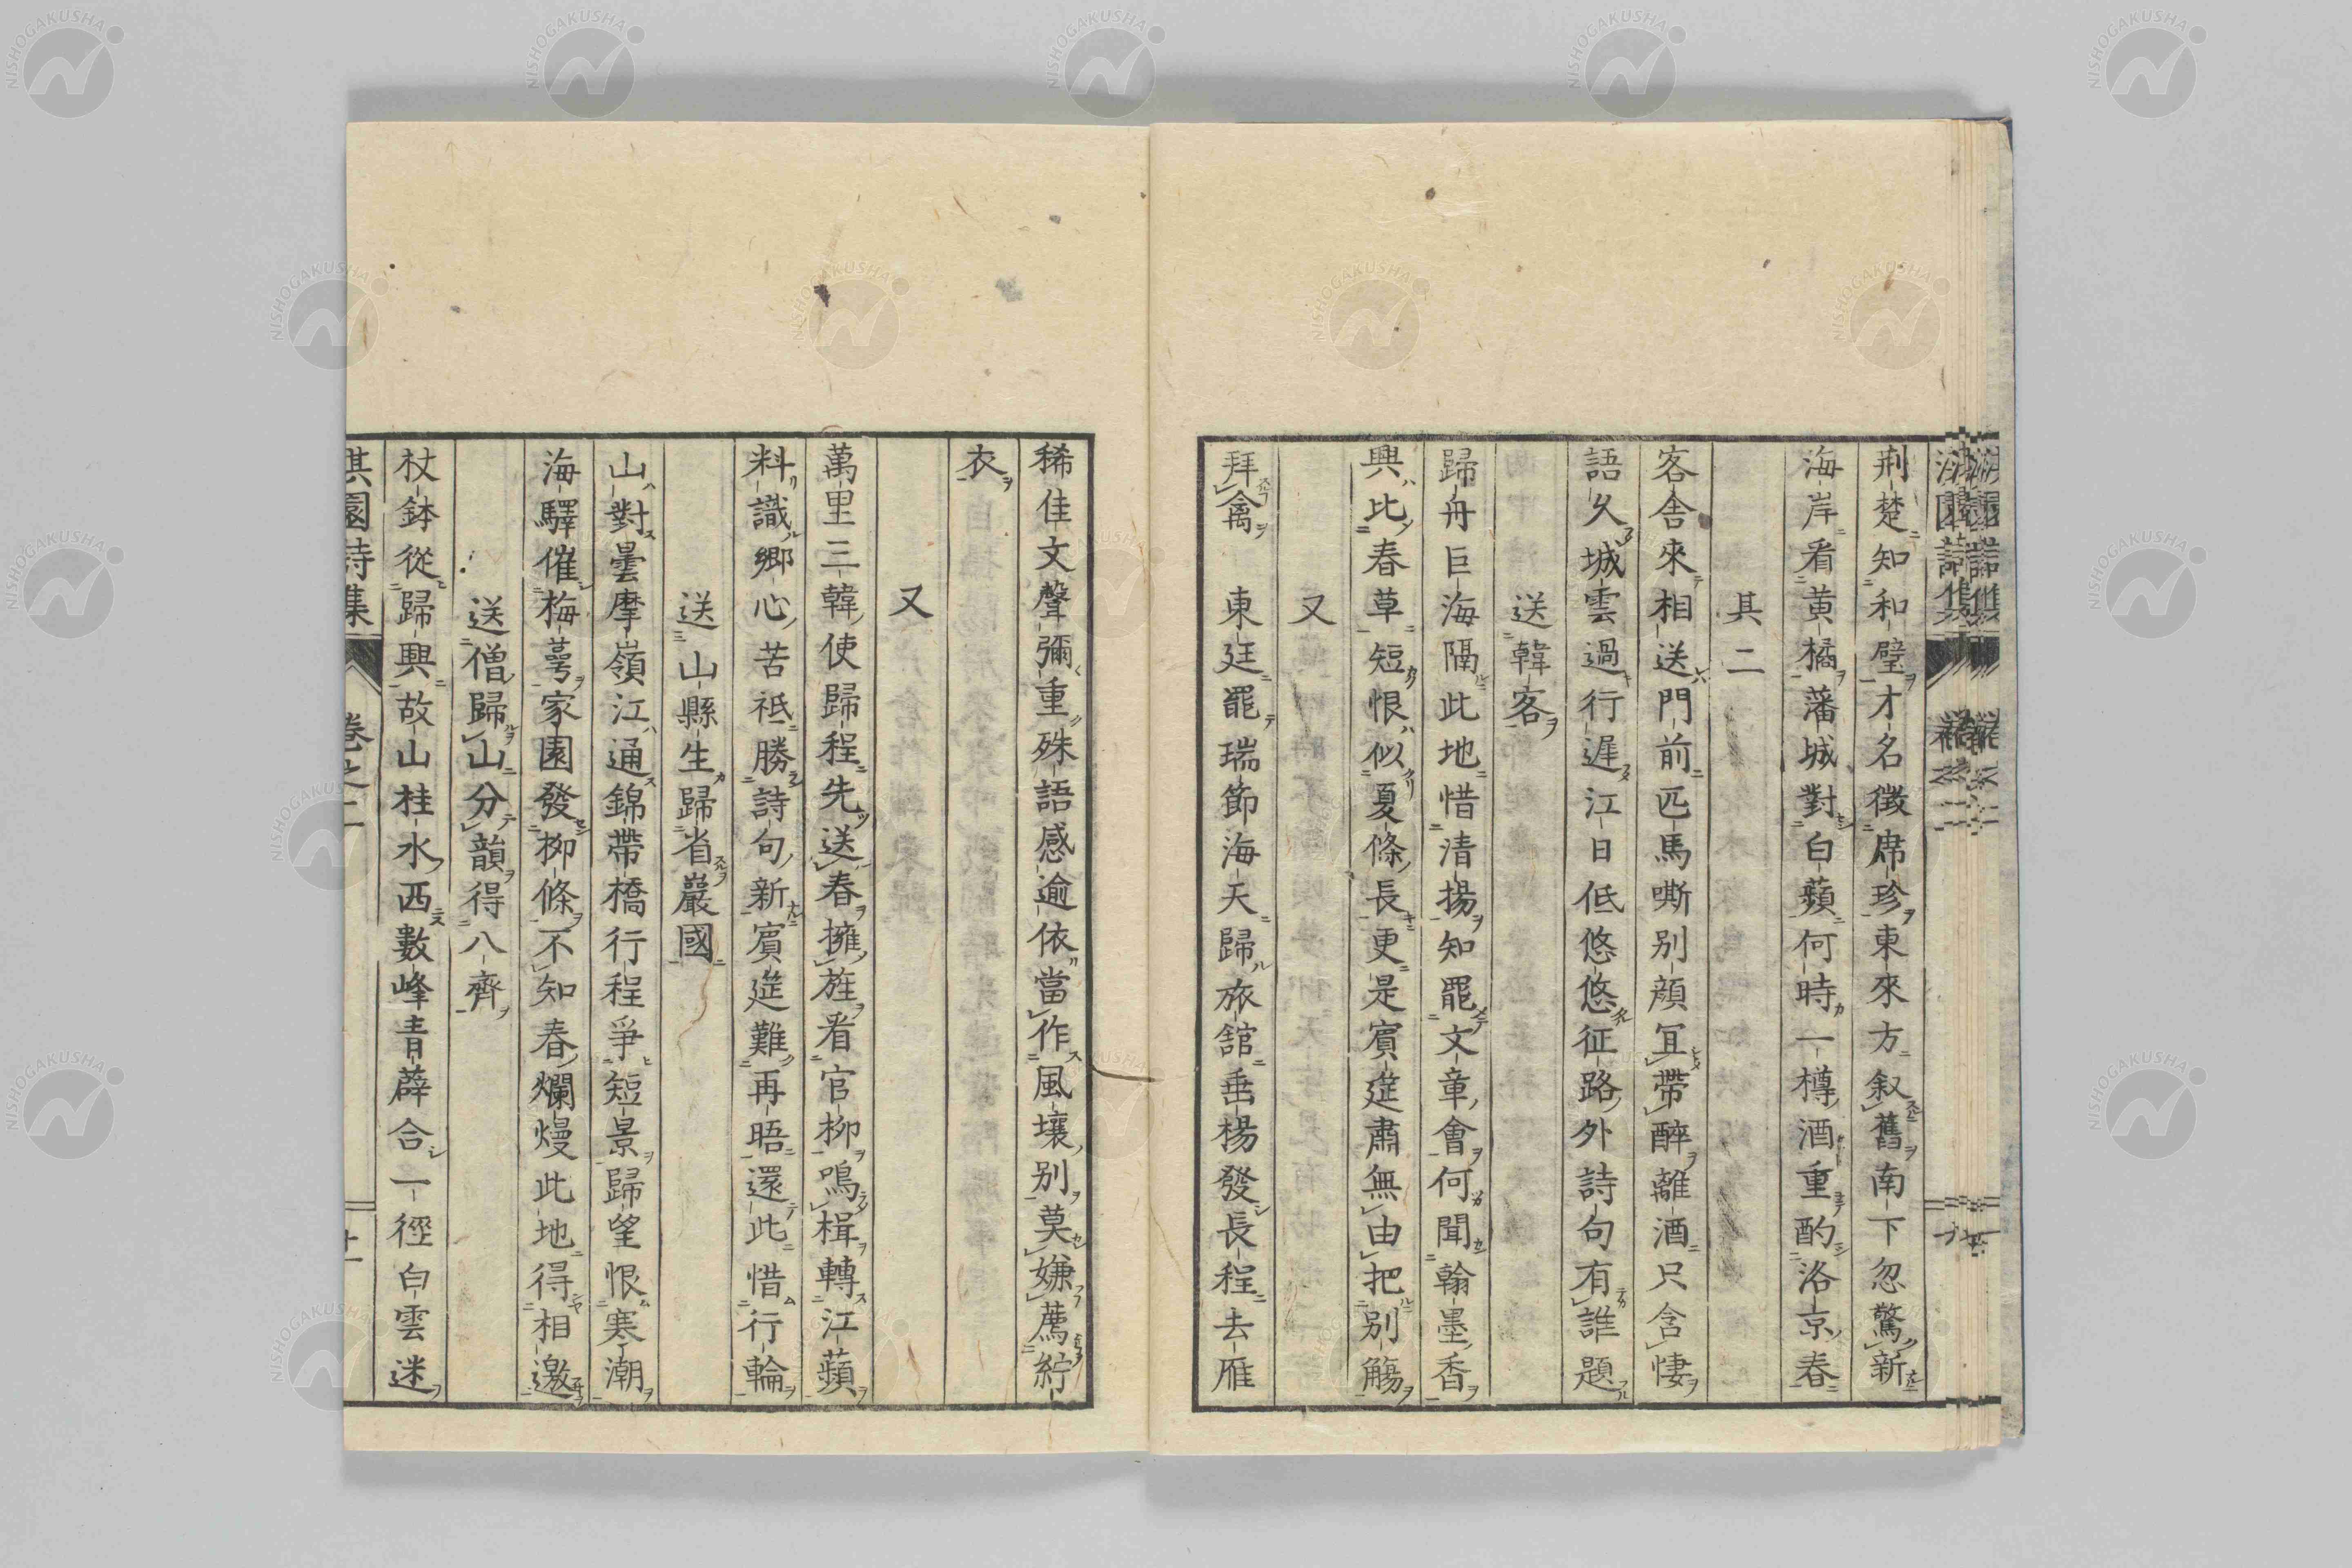 荆楚知和璧才名徵席珍東來方叙舊南下忽驚新
海岸看黄橘藩城對白蘋何時一樽酒重酌洛京春
其二
客舍來相送門前匹馬嘶别顔冝帶醉離酒只含悽
語久城雲過行遲江日低悠悠征路外詩句有誰題
送韓客
歸舟巨海隔此地惜清揚知罷文章會何聞翰墨香
興比春草短恨似夏條長更是賓筵肅無由把别觴
又
拜禽　東廷罷瑞節海天歸旅舘垂楊發長程去雁
稀佳文聲彌重殊語感逾依當作風壤别莫嫌薦紵
衣
又
萬里三韓使歸程先送春擁旌看官柳鳴楫轉江蘋
料識郷心苦祗勝詩句新賓筵難再晤還此惜行輪
送山縣生歸省巖國
山對曇摩嶺江通錦帶橋行程爭短景歸望恨寒潮
海驛催梅萼家園發柳條不知春爛熳此地得相邀
送僧歸山分韻得八齊
杖鉢從歸興故山桂水西數峰青薜合一徑白雲迷
淇園詩集　卷之二　十一
NISHOGAKUSHA